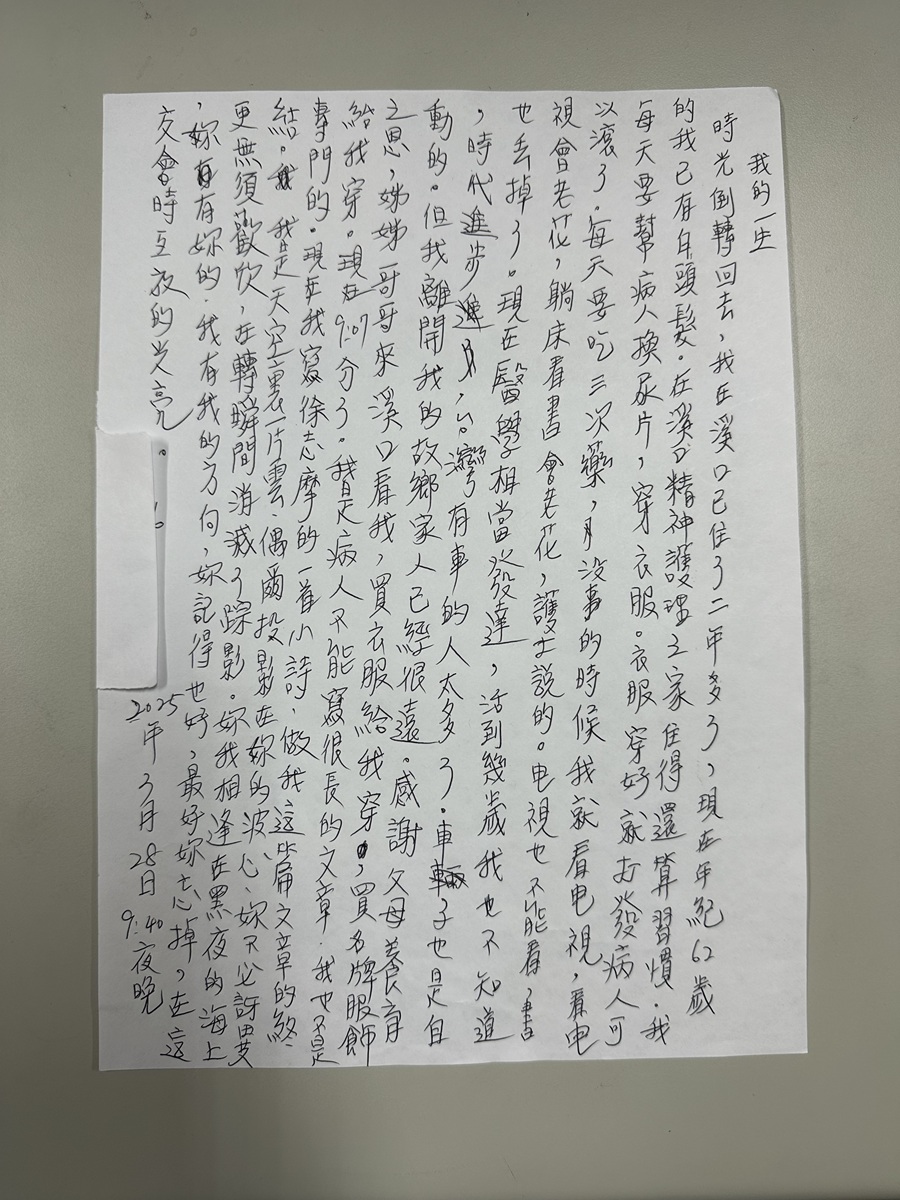 我的一生
時光倒轉回去，我在溪口已住了二年多了，現在年紀62歲
的我已有白頭髮。在溪口精神護理之家住得還算習慣。我
每天要幫病人換尿片，穿衣服。衣服穿好就打發病人可
以滾了。每天要吃三次藥，沒事的時候我就看电視，看电
視會老花，躺床看書會老花，護士說的。电視也不能看，書
也丟掉了。現在醫學相當發達，活到幾歲我也不知道
，時代進步，灣有車的人太多了。車子也是自
動的。但我離開我的故鄉家人已經很遠。感謝父母養育
之恩，姊姊哥哥來溪口看我，買衣服給我穿，買名牌服飾
給我穿。現在9:07分了。我是病人不能寫很長的文章．我也不是
專門的。現在我寫徐志摩的一首小詩，做我這篇文章的終
結。我是天空裏一片雲，偶爾投影在妳的波心、妳不必訝異
更無須歡欣，在轉瞬間消滅了踪影。妳我相逢在黑夜的海上
，妳有妳的．我有我的方向，妳記得也好，最好妳忘掉，在這
交會時互放的光亮。
2025年3月28日9:40夜晚